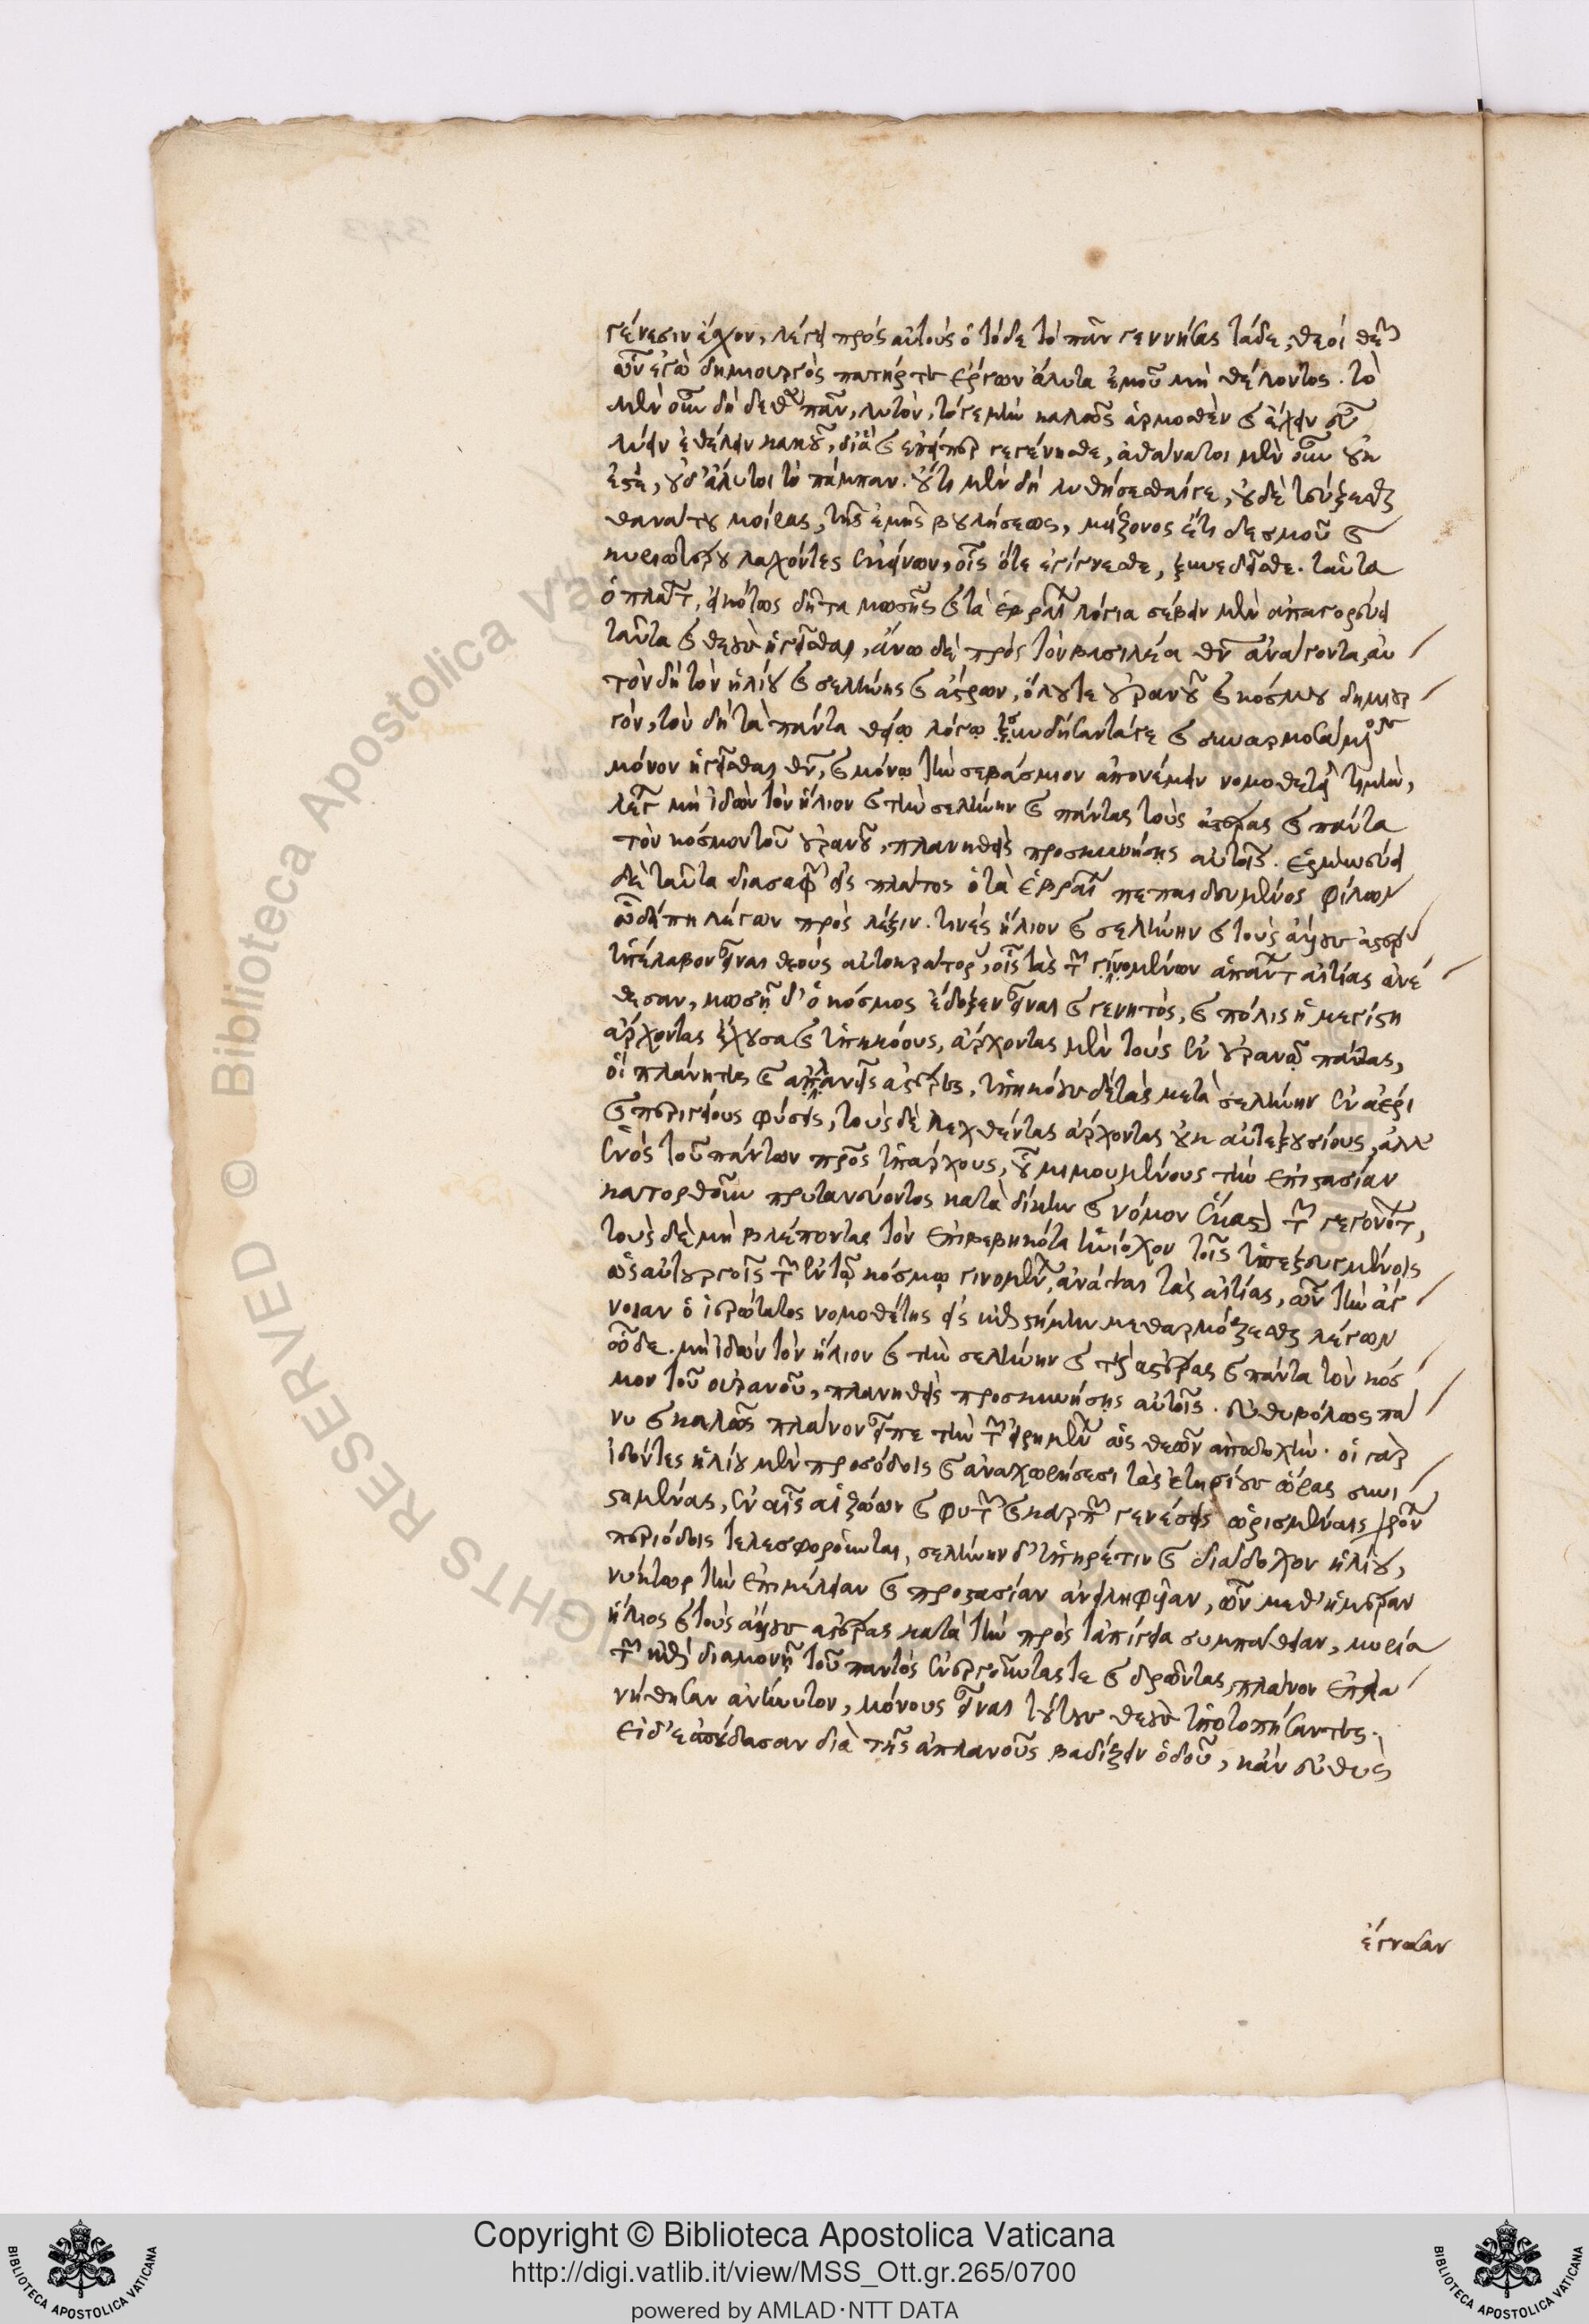 γένεσιν ἔχον, λέγει πρὸς αὐτοὺς ὁ τόδε τὸ πᾶν γεννήσας τάδε, θεοὶ θεῶν
ὧν ἐγὼ δημιουργὸς πατήρ τε ἔργων ἄλυτα ἐμοῦ μὴ θέλοντος. τὸ
μὲν οὖν δὴ δεθὲν πᾶν, λυτὸν, τό γε μὴν καλῶς ἁρμοσθὲν καὶ ἔχειν εὖ
λύειν ἐθέλειν κακοῦ, διὰ καὶ ἐπείπερ γεγένησθε, ἀθάνατοι μὲν οὖν οὐκ
ἐστὲ, οὐδ' ἄλυτοι τὸ πάμπαν. οὔτι μὲν δὴ λυθήσεσθαί γε, οὐδὲ τεύξεσθε
θανάτου μοίρας, τῆς ἐμῆς βουλήσεως, μείζονος ἔτι δεσμοῦ καὶ
κυριωτέρου λαχόντες ἐκείνων, οἷς ὅτε ἐγίγνεσθε, ξυνεδεῖσθε. ταῦτα
ὁ πλάτων, εἰκότως δῆτα μωσῆς καὶ τὰ ἑβραίων λόγια σέβειν μὲν ἀπαγορεύει
ταῦτα καὶ θεοὺς ἡγεῖσθαι, ἄνω δὲ πρὸς τὸν βασιλέα θεὸν ἀνάγοντα, αὐ
τὸν δὴ τὸν ἡλίου καὶ σελήνης καὶ ἄστρων, ὅλου τε οὐρανοῦ καὶ κόσμου δημιουρ
γὸν, τὸν δὴ τὰ πάντα θείῳ λόγῳ ξυνδήσαντά γε καὶ συναρμοσάμενον
μόνον ἡγεῖσθαι θεὸν, καὶ μόνῳ τὴν σεβάσμιον ἀπονέμειν νομοθετεῖ τιμὴν,
λέγων μὴ ἰδὼν τὸν ἥλιον καὶ τὴν σελήνην καὶ πάντας τοὺς ἀστέρας καὶ πάντα
τὸν κόσμον τοῦ οὐρανοῦ, πλανηθεὶς προσκυνήσῃς αὐτοῖς. ἑρμηνεύει
δὲ ταῦτα διασαφῶν εἰς πλάτος ὁ τὰ ἑβραίων πεπαιδευμένος φίλων
ὧδέ πη λέγων πρὸς λέξιν. τινὲς ἥλιον καὶ σελήνην καὶ τοὺς ἄλλους ἀστέρας
ὑπέλαβον εἶναι θεοὺς αὐτοκράτορας, οἷς τὰς τῶν γινομένων ἁπάντων αἰτίας ἀνέ
θεσαν, μωσῇ δ' ὁ κόσμος ἔδοξεν εἶναι καὶ γενητὸς, καὶ πόλις ἡ μεγίστη
ἄρχοντας ἔχουσα καὶ ὑπηκόους, ἄρχοντας μὲν τοὺς ἐν οὐρανῷ πάντας,
οἱ πλάνητες καὶ ἀπλανεῖς ἀστέρες, ὑπηκόους δὲ τὰς μετὰ σελήνην ἐν ἀέρι
καὶ περιγείους φύσεις, τοὺς δὲ λεχθέντας ἄρχοντας οὐκ αὐτεξουσίους, ἀλλ'
ἑνὸς τοῦ πάντων πατρὸς ὑπάρχους, οὗ μιμουμένους τὴν ἐπιστασίαν
κατορθοῦν πρυτανεύοντος κατὰ δίκην καὶ νόμον ἕκαστον τῶν γεγονότων,
τοὺς δὲ μὴ βλέποντας τὸν ἐπιβεβηκότα ἡνίοχον τοῖς ὑπεζευγμένοις
ὡς αὐτουργοῖς τῶν ἐν τῷ κόσμῳ γινομένων, ἀνάψαι τὰς αἰτίας, ὧν τὴν ἄγ
νοιαν ὁ ἱερώτατος νομοθέτης εἰς ἐπιστήμην μεθαρμόζεται λέγων
ὧδε. μὴ ἰδὼν τὸν ἥλιον καὶ τὴν σελήνην καὶ τοὺς ἀστέρας καὶ πάντα τὸν κόσ
μον τοῦ οὐρανοῦ, πλανηθεὶς προσκυνήσῃς αὐτοῖς. εὐθυβόλως πά
νυ καὶ καλῶς πλάνον εἶπε τὴν τῶν εἰρημένων ὡς θεῶν ἀποδοχήν. οἱ γὰρ
ἰδόντες ἡλίου μὲν προσόδοις καὶ ἀναχωρήσεσι τὰς ἐτησίους ὥρας συνι
σταμένας, ἐν αἷς αἱ ζώων καὶ φυτῶν καὶ καρπῶν γενέσεις ὡρισμέναις χρόνων
περιόδοις τελεσφοροῦνται, σελήνην δ' ὑπηρέτιν καὶ διάδοχον ἡλίου,
νύκτωρ τὴν ἐπιμέλειαν καὶ προστασίαν ἀνειληφυῖαν, ὧν μεθ' ἡμέραν
ἥλιος καὶ τοὺς ἄλλους ἀστέρας κατὰ τὴν πρὸς τἀπίγεια συμπάθειαν, μυρία
τῶν ἐπὶ διαμονῇ τοῦ παντὸς ἐνεργοῦντάς τε καὶ δρῶντας, πλάνον ἐπλα
νήθησαν ἀνήνυτον, μόνους εἶναι τούτους θεοὺς ὑποτοπήσαντες.
εἰ δ' ἐσπούδασαν διὰ τῆς ἀπλανοῦς βαδίζειν ὁδοῦ, κἂν εὐθὺς
ἔγνωσαν
Copyright © Biblioteca Apostolica Vaticana
http://digi.vatlib.it/view/MSS_Ott.gr.265/0700
powered by AMLAD·NTT DATA